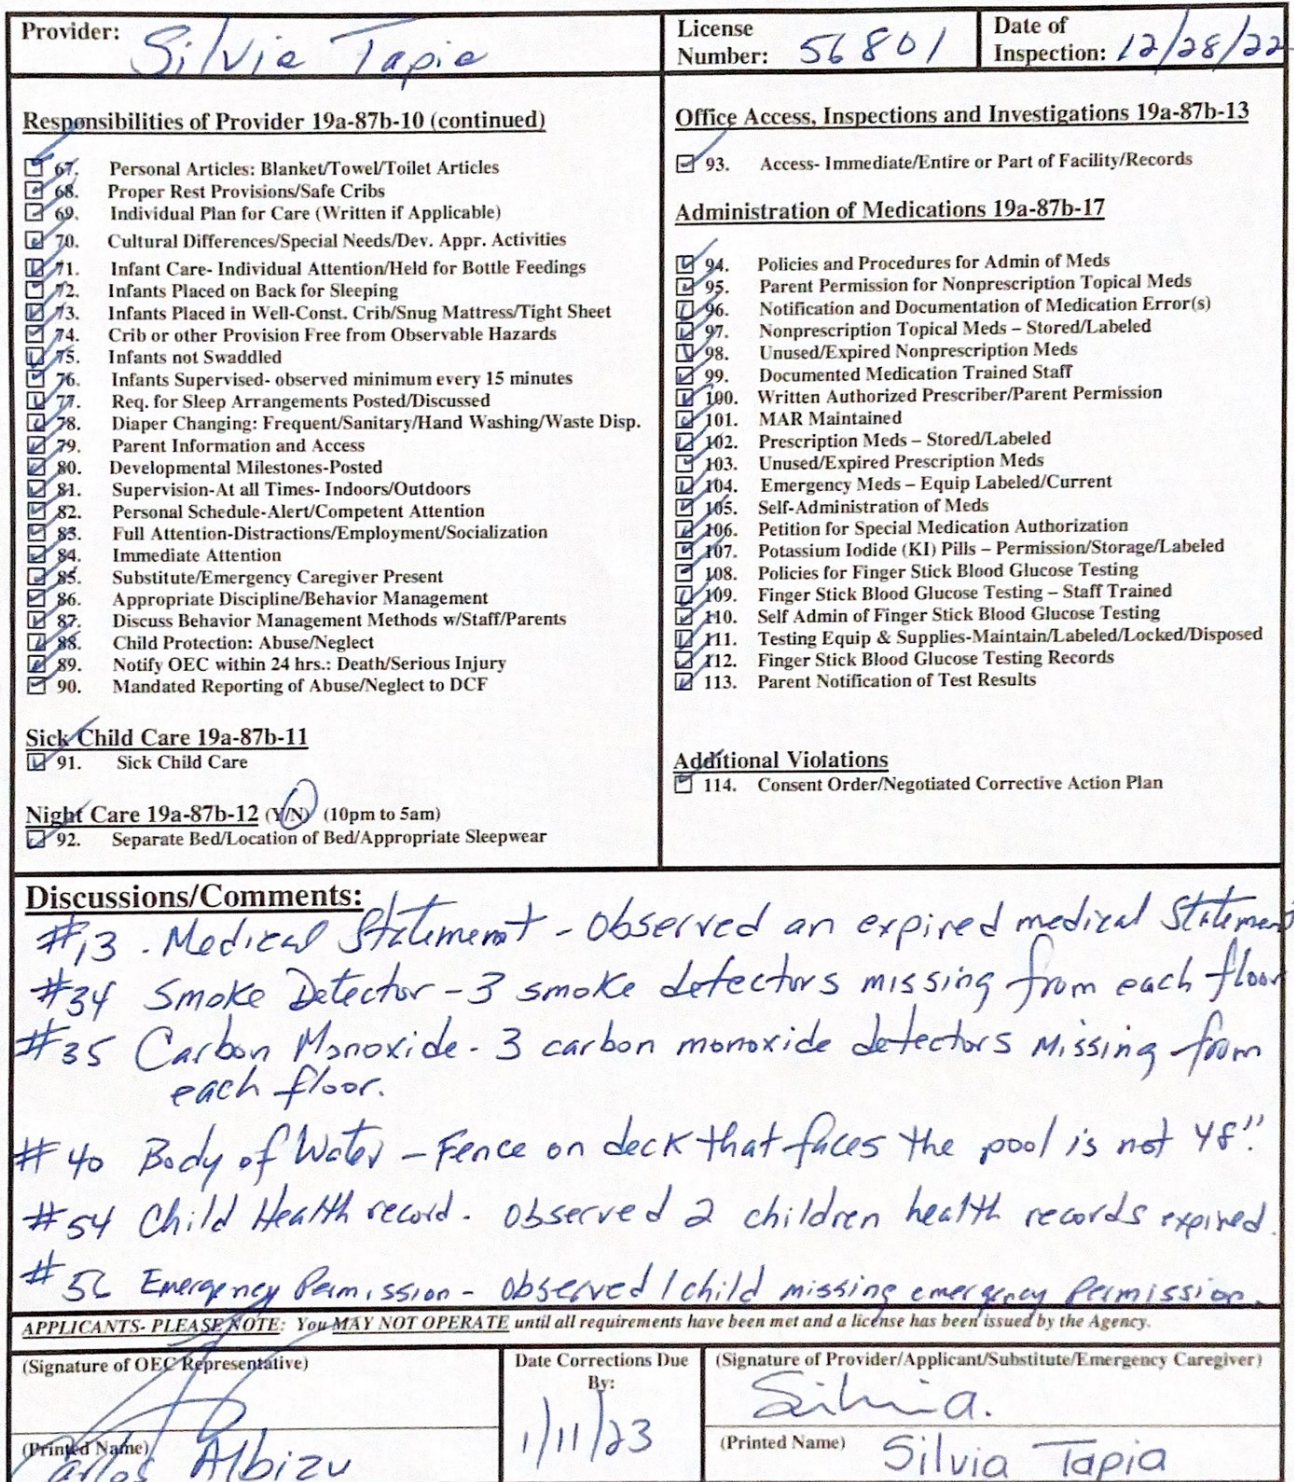 Provider: Silvia Tapia
License Number: 56801
Date of Inspection: 12/28/22
Responsibilities of Provider 19a-87b-10 (continued)
67. Personal Articles: Blanket/Towel/Toilet Articles
68. Proper Rest Provisions/Safe Cribs
69. Individual Plan for Care (Written if Applicable)
70. Cultural Differences/Special Needs/Dev. Appr. Activities
71. Infant Care- Individual Attention/Held for Bottle Feedings
72. Infants Placed on Back for Sleeping
73. Infants Placed in Well-Const. Crib/Snug Mattress/Tight Sheet
74. Crib or other Provision Free from Observable Hazards
75. Infants not Swaddled
76. Infants Supervised- observed minimum every 15 minutes
77. Req. for Sleep Arrangements Posted/Discussed
78. Diaper Changing: Frequent/Sanitary/Hand Washing/Waste Disp.
79. Parent Information and Access
80. Developmental Milestones-Posted
81. Supervision-At all Times- Indoors/Outdoors
82. Personal Schedule-Alert/Competent Attention
83. Full Attention-Distractions/Employment/Socialization
84. Immediate Attention
85. Substitute/Emergency Caregiver Present
86. Appropriate Discipline/Behavior Management
87. Discuss Behavior Management Methods w/Staff/Parents
88. Child Protection: Abuse/Neglect
89. Notify OEC within 24 hrs.: Death/Serious Injury
90. Mandated Reporting of Abuse/Neglect to DCF
Sick Child Care 19a-87b-11
91. Sick Child Care
Night Care 19a-87b-12 (Y/N) (10pm to 5am)
92. Separate Bed/Location of Bed/Appropriate Sleepwear
Office Access, Inspections and Investigations 19a-87b-13
93. Access- Immediate/Entire or Part of Facility/Records
Administration of Medications 19a-87b-17
94. Policies and Procedures for Admin of Meds
95. Parent Permission for Nonprescription Topical Meds
96. Notification and Documentation of Medication Error(s)
97. Nonprescription Topical Meds – Stored/Labeled
98. Unused/Expired Nonprescription Meds
99. Documented Medication Trained Staff
100. Written Authorized Prescriber/Parent Permission
101. MAR Maintained
102. Prescription Meds – Stored/Labeled
103. Unused/Expired Prescription Meds
104. Emergency Meds – Equip Labeled/Current
105. Self-Administration of Meds
106. Petition for Special Medication Authorization
107. Potassium Iodide (KI) Pills – Permission/Storage/Labeled
108. Policies for Finger Stick Blood Glucose Testing
109. Finger Stick Blood Glucose Testing – Staff Trained
110. Self Admin of Finger Stick Blood Glucose Testing
111. Testing Equip & Supplies-Maintain/Labeled/Locked/Disposed
112. Finger Stick Blood Glucose Testing Records
113. Parent Notification of Test Results
Additional Violations
114. Consent Order/Negotiated Corrective Action Plan
Discussions/Comments:
#13. Medical Statement - Observed an expired medical Statement
#34 Smoke Detector - 3 smoke detectors missing from each floor
#35 Carbon Monoxide - 3 carbon monoxide detectors Missing from
each floor.
#40 Body of Water - Fence on deck that faces the pool is not 48".
#54 Child Health record. Observed 2 children health records expired.
#56 Emergency Permission - Observed 1 child missing emergency Permission.
APPLICANTS- PLEASE NOTE: You MAY NOT OPERATE until all requirements have been met and a license has been issued by the Agency.
(Signature of OEC Representative)
(Printed Name) Carlos Albizu
Date Corrections Due
By:
1/11/23
(Signature of Provider/Applicant/Substitute/Emergency Caregiver)
Silvia.
(Printed Name) Silvia Tapia